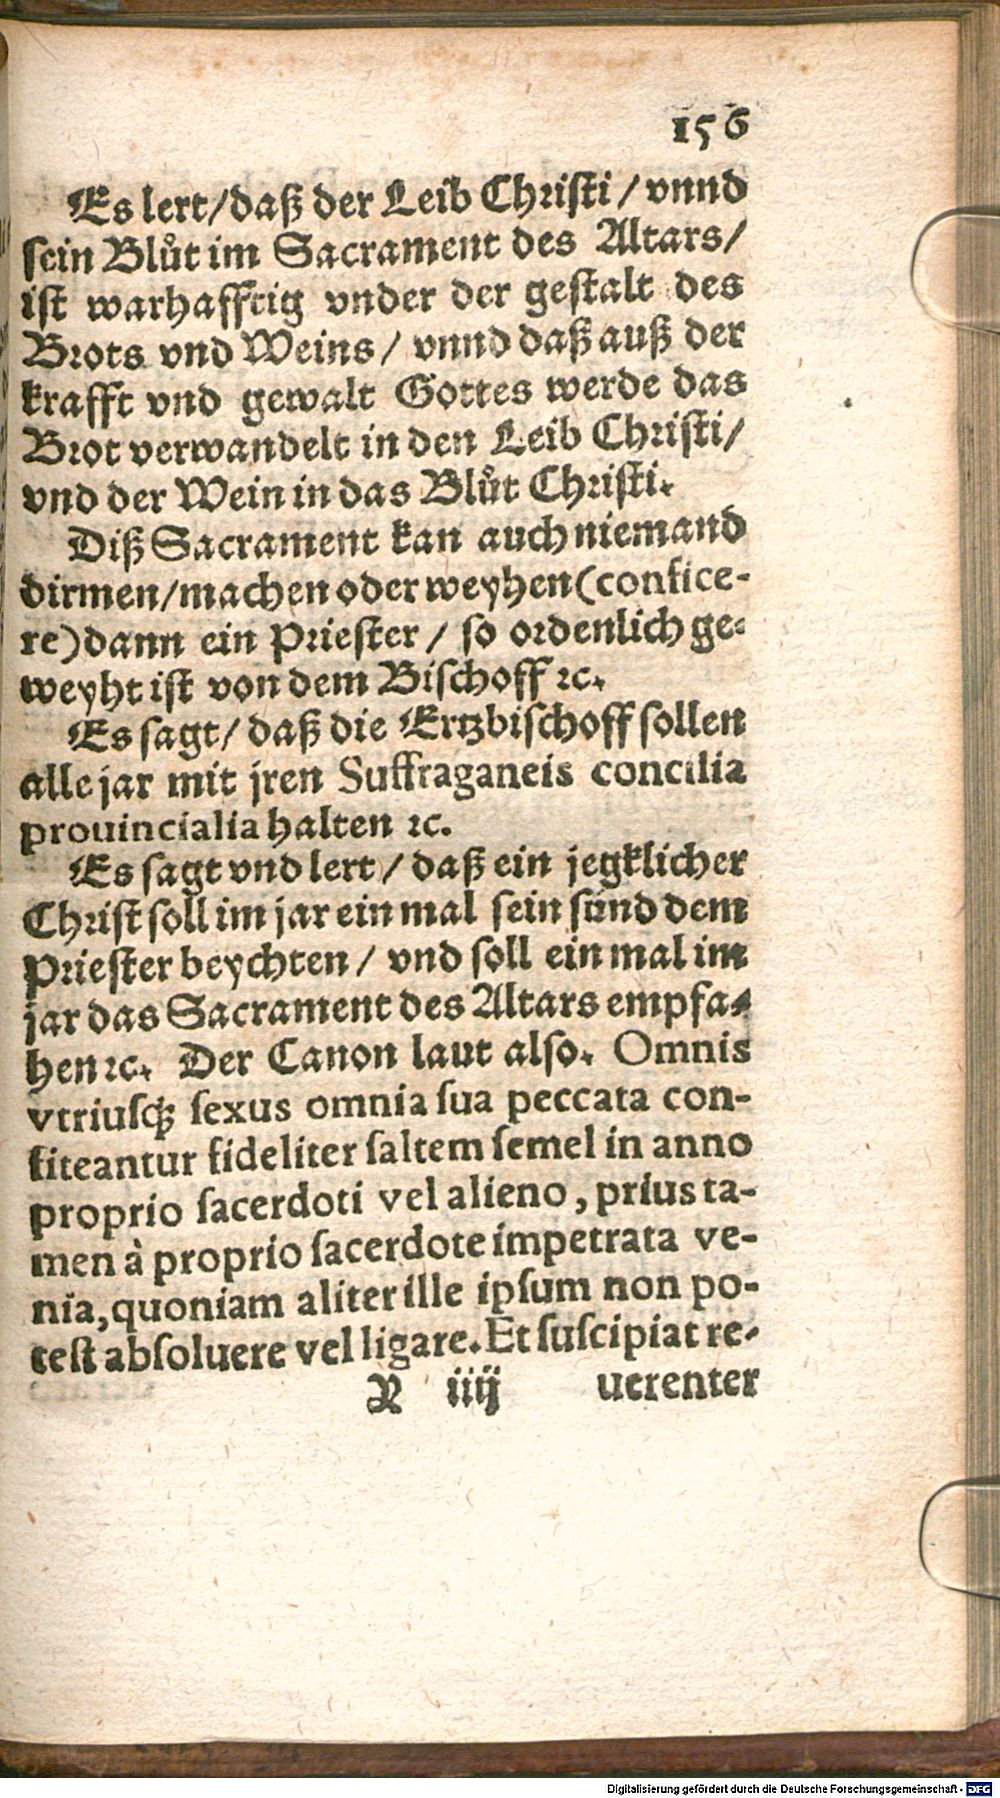 156
Es lert/daß der Leib Christi/vnnd
sein Blůt im Sacrament des Altars/
ist warhafftig vnder der gestalt des
Brots vnd Weins/ vnnd daß auß der
krafft vnd gewalt Gottes werde das
Brot verwandelt in den Leib Christi/
vnd der Wein in das Blůt Christi.
Diß Sacrament kan auch niemand
dirmen/machen oder weyhen(confice-
re)dann ein Priester/ so ordenlich ge-
weyht ist von dem Bischoff ꝛc.
Es sagt/ daß die Ertzbischoff sollen
alle jar mit jren Suffraganeis concilia
prouincialia halten ꝛc.
Es sagt vnd lert/ daß ein jegklicher
Christ soll im jar ein mal sein sünd dem
Priester beychten/ vnd soll ein mal im
jar das Sacrament des Altars empfa-
hen ꝛc. Der Canon laut also. Omnis
vtriusqꝫ sexus omnia sua peccata con-
fiteantur fideliter saltem semel in anno
proprio sacerdoti vel alieno, prius ta-
men à proprio sacerdote impetrata ve-
nia, quoniam aliter ille ipsum non po-
test absoluere vel ligare. Et suscipiat re-
R iiij uerenter
Digitalisierung gefördert durch die Deutsche Forschungsgemeinschaft - DFG